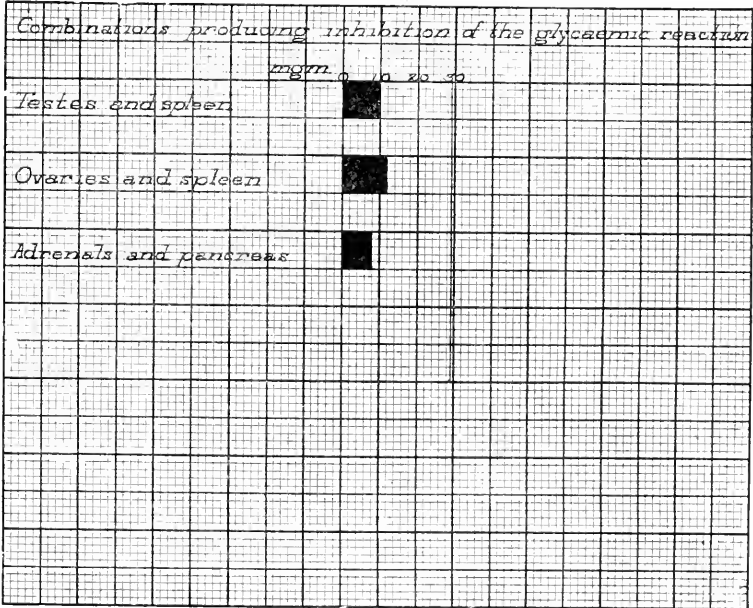 Combinations producing inhibition of the glycaemic reaction
mgm 0 10 20 30
Testes and spleen
Ovaries and spleen
Adrenals and pancreas